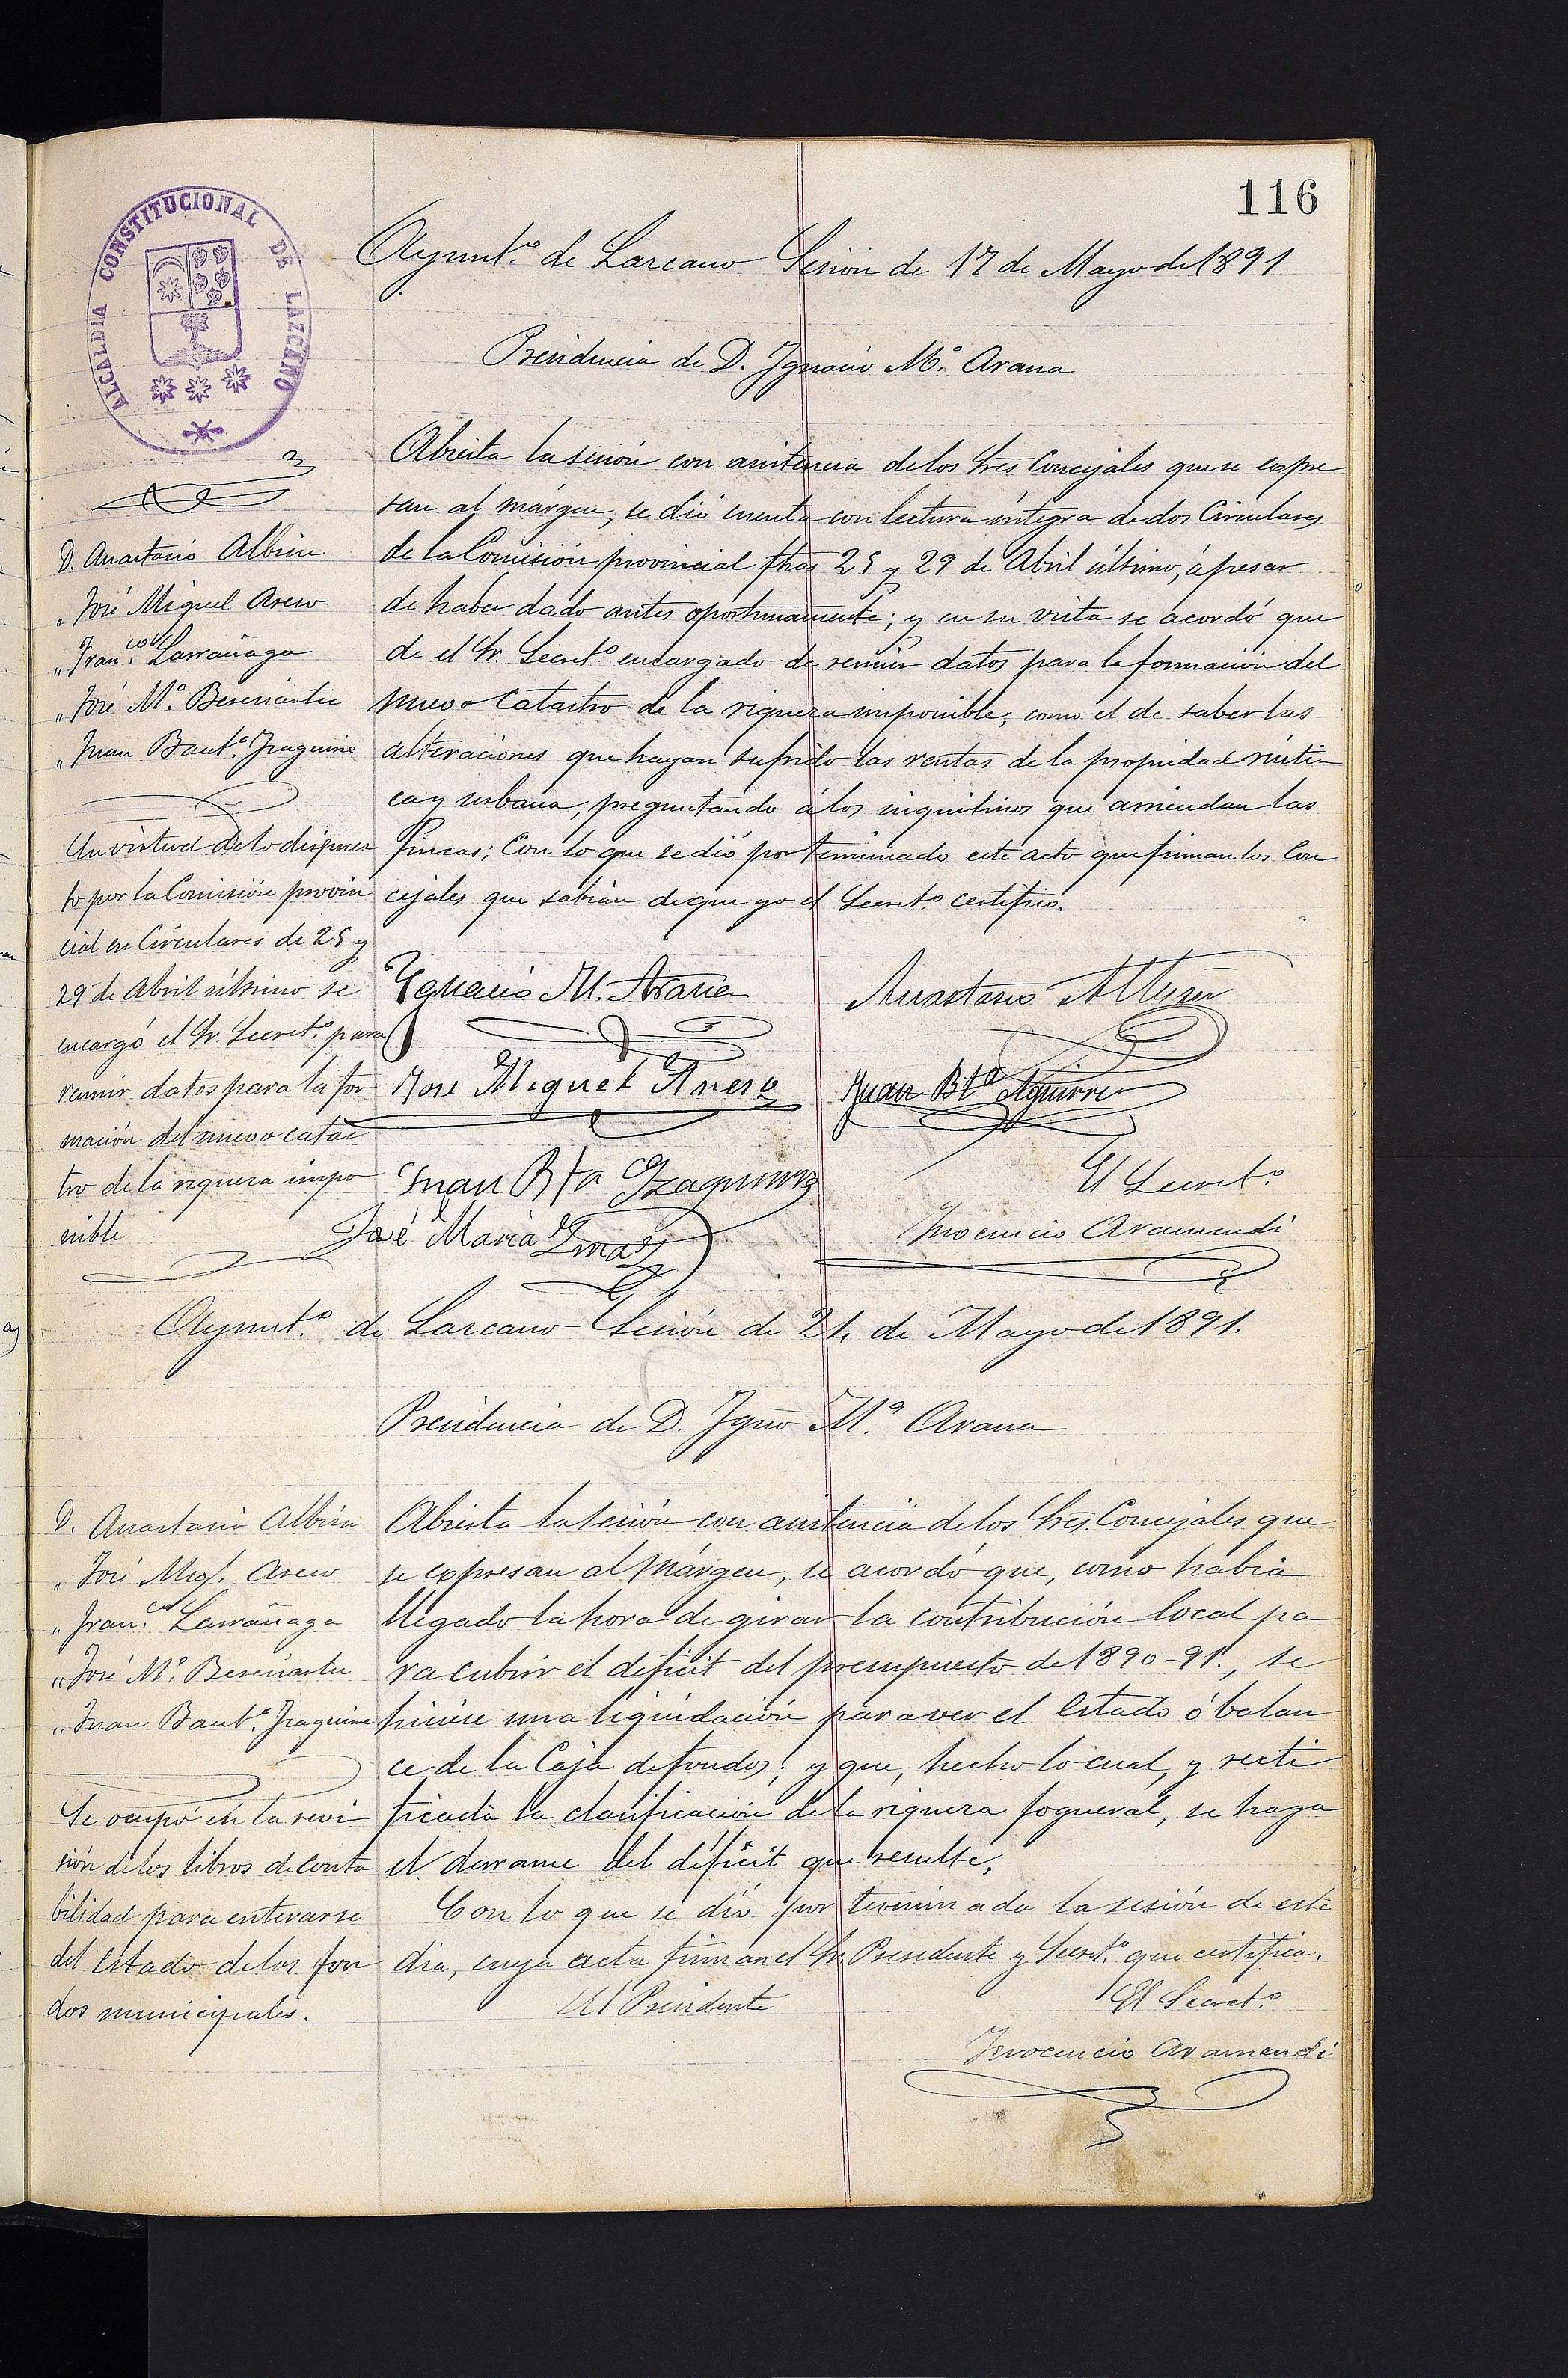 116
ALCALDIA CONSTITUCIONAL DE LAZCANO
Ayunt.º de Lazcano Sesión de 17 de Mayo de 1891
Presidencia de D. Ignacio M.ª Arana
D. Anastasio Albisu
„ José Miguel Aseso
„ Fran.co Larrañaga
„ José M.ª Bereciartu
„ Juan Baut.ª Izaguirre
En virtud de lo dispues
to por la Comisión provin
cial en Circulares de 25 y
29 de Abril último se
encargó el Sr. Secret.º para
reunir datos para la for
mación del nuevo catas
tro de la riqueza impo
nible
Abierta la sesión con asistencia de los Sres Concejales que se expre
san al márgen, se dió cuenta con lectura íntegra de dos Circulares
de la Comisión provincial fhas 25 y 29 de Abril último, á pesar
de haber dado antes oportunamente; y en su vista se acordó que
de el Sr. Secret.º encargado de reunir datos para la formación del
nuevo Catastro de la riqueza imponible, como el de saber las
alteraciones que hayan sufrido las rentas de la propiedad rústi-
ca y urbana, preguntando á los inquilinos que arriendan las
fincas; Con lo que se dió por terminado este acto que firman los Con
cejales que sabian de que yo el Secret.º certifico.
Ygnacio M. Arana
Anastasio Albisu
José Miguel Aseso
Juan Bta Aguirre
Juan Bta Izaguirre
El Secret.º
José Maria Imaz
Inocencio Aramendi
Ayunt.º de Lazcano Sesión de 24 de Mayo de 1891.
Presidencia de D. Igno M.ª Arana
D. Anastasio Albisu
„ José Migl. Aseso
„ Fran.co Larrañaga
„ José M.ª Bereciartu
„ Juan Baut.ª Izaguirre
Se ocupó en la revi
sión de los libros de conta
bilidad para enterarse
del estado de los fon
dos municipales.
Abierta la sesión con asistencia de los Sres. Concejales que
se expresan al márgen, se acordó que, como habia
llegado la hora de girar la contribución local pa
ra cubrir el deficit del presupuesto de 1890-91., se
hiciese una liquidación para ver el Estado ó balan
ce de la Caja de fondos; y que, hecho lo cual, y recti
ficada la clasificación de la riqueza fogueral, se haga
el derrame del déficit que resulte.
Con lo que se dió por terminada la sesión de este
dia, cuya acta firman el Sr. Presidente y Secret.º que certifica.
El Presidente
El Secret.º
Inocencio Aramendi